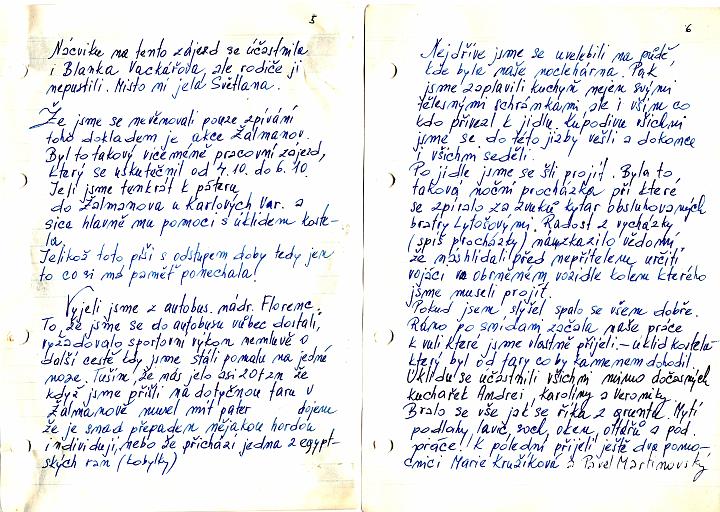 5
Nácviku na tento zájezd se účastnila
i Blanka Vackářova, ale rodiče ji
nepustili. Místo ní jela Světlana.
Že jsme se nevěnovali pouze zpívání
toho dokladem je akce Žalmanov.
Byl to takový víceméně pracovní zájezd,
který se uskutečnil od 4.10. do 6.10.
Jeli jsme tenkrát k páteru
do Žalmanova u Karlových Var. a
sice hlavně mu pomoci s úklidem koste-
la.
Jelikož toto píši s odstupem doby tedy jen
to co si má paměť ponechala!
Vyjeli jsme z autobus. nádr. Florenc.
To, že jsme se do autobusu vůbec dostali,
vyžadovalo sportovní výkon nemluvě o
další cestě kdy jsme stáli pomalu na jedné
noze. Tuším, že nás jelo asi 20 tzn že
když jsme přišli na dotyčnou faru v
Žalmanově musel mít pater dojem
že je snad přepaden nějakou hordou
individuí, nebo že přichází jedna z egypt-
ských ran (kobylky)
6
Nejdříve jsme se uvelebili na půdě,
kde byla naše noclehárna. Pak
jsme zaplavili kuchyň nejen svými
tělesnými schránkami ale i vším co
kdo přivezl k jídlu. Kupodivu všichni
jsme se do této jizby vešli a dokonce
i všichni seděli.
Po jídle jsme se šli projít. Byla to
taková noční procházka při které
se zpívalo za zvuků kytar obsluhovaných
bratry Lytošovými. Radost z vycházky
(spíš procházky) nám zkazilo vědomí,
že nás hlídali před nepřítelem určití
vojáci v obrněném vozidle kolem kterého
jsme museli projít.
Pokud jsem slyšel spalo se všem dobře.
Ráno po snídani začala naše práce
k vůli které jsme vlastně přijeli. – úklid kostela
který byl od fary co by kamenem dohodil
Úklidu se účastnili všichni mimo dočasných
kuchařek Andrei, Karoliny a Veroniky.
Bralo se vše jak se říká z gruntu. Mytí
podlahy lavic, soch, oken, oltářů a pod.
práce! K polední přijeli ještě dva pomo-
cníci Marie Kružíková a Pavel Martinovský